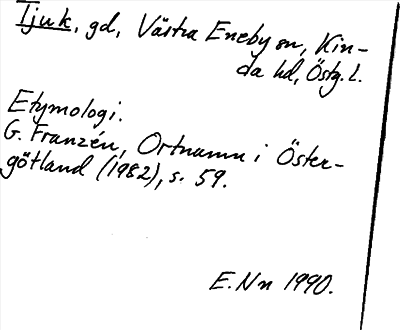 Tjuk, gd, Västra Eneby sn, Kin-
da hd, Östg. l.
Etymologi.
G. Franzén, Ortnamn i Öster-
götland (1982), s. 59.
E. Nn 1990.